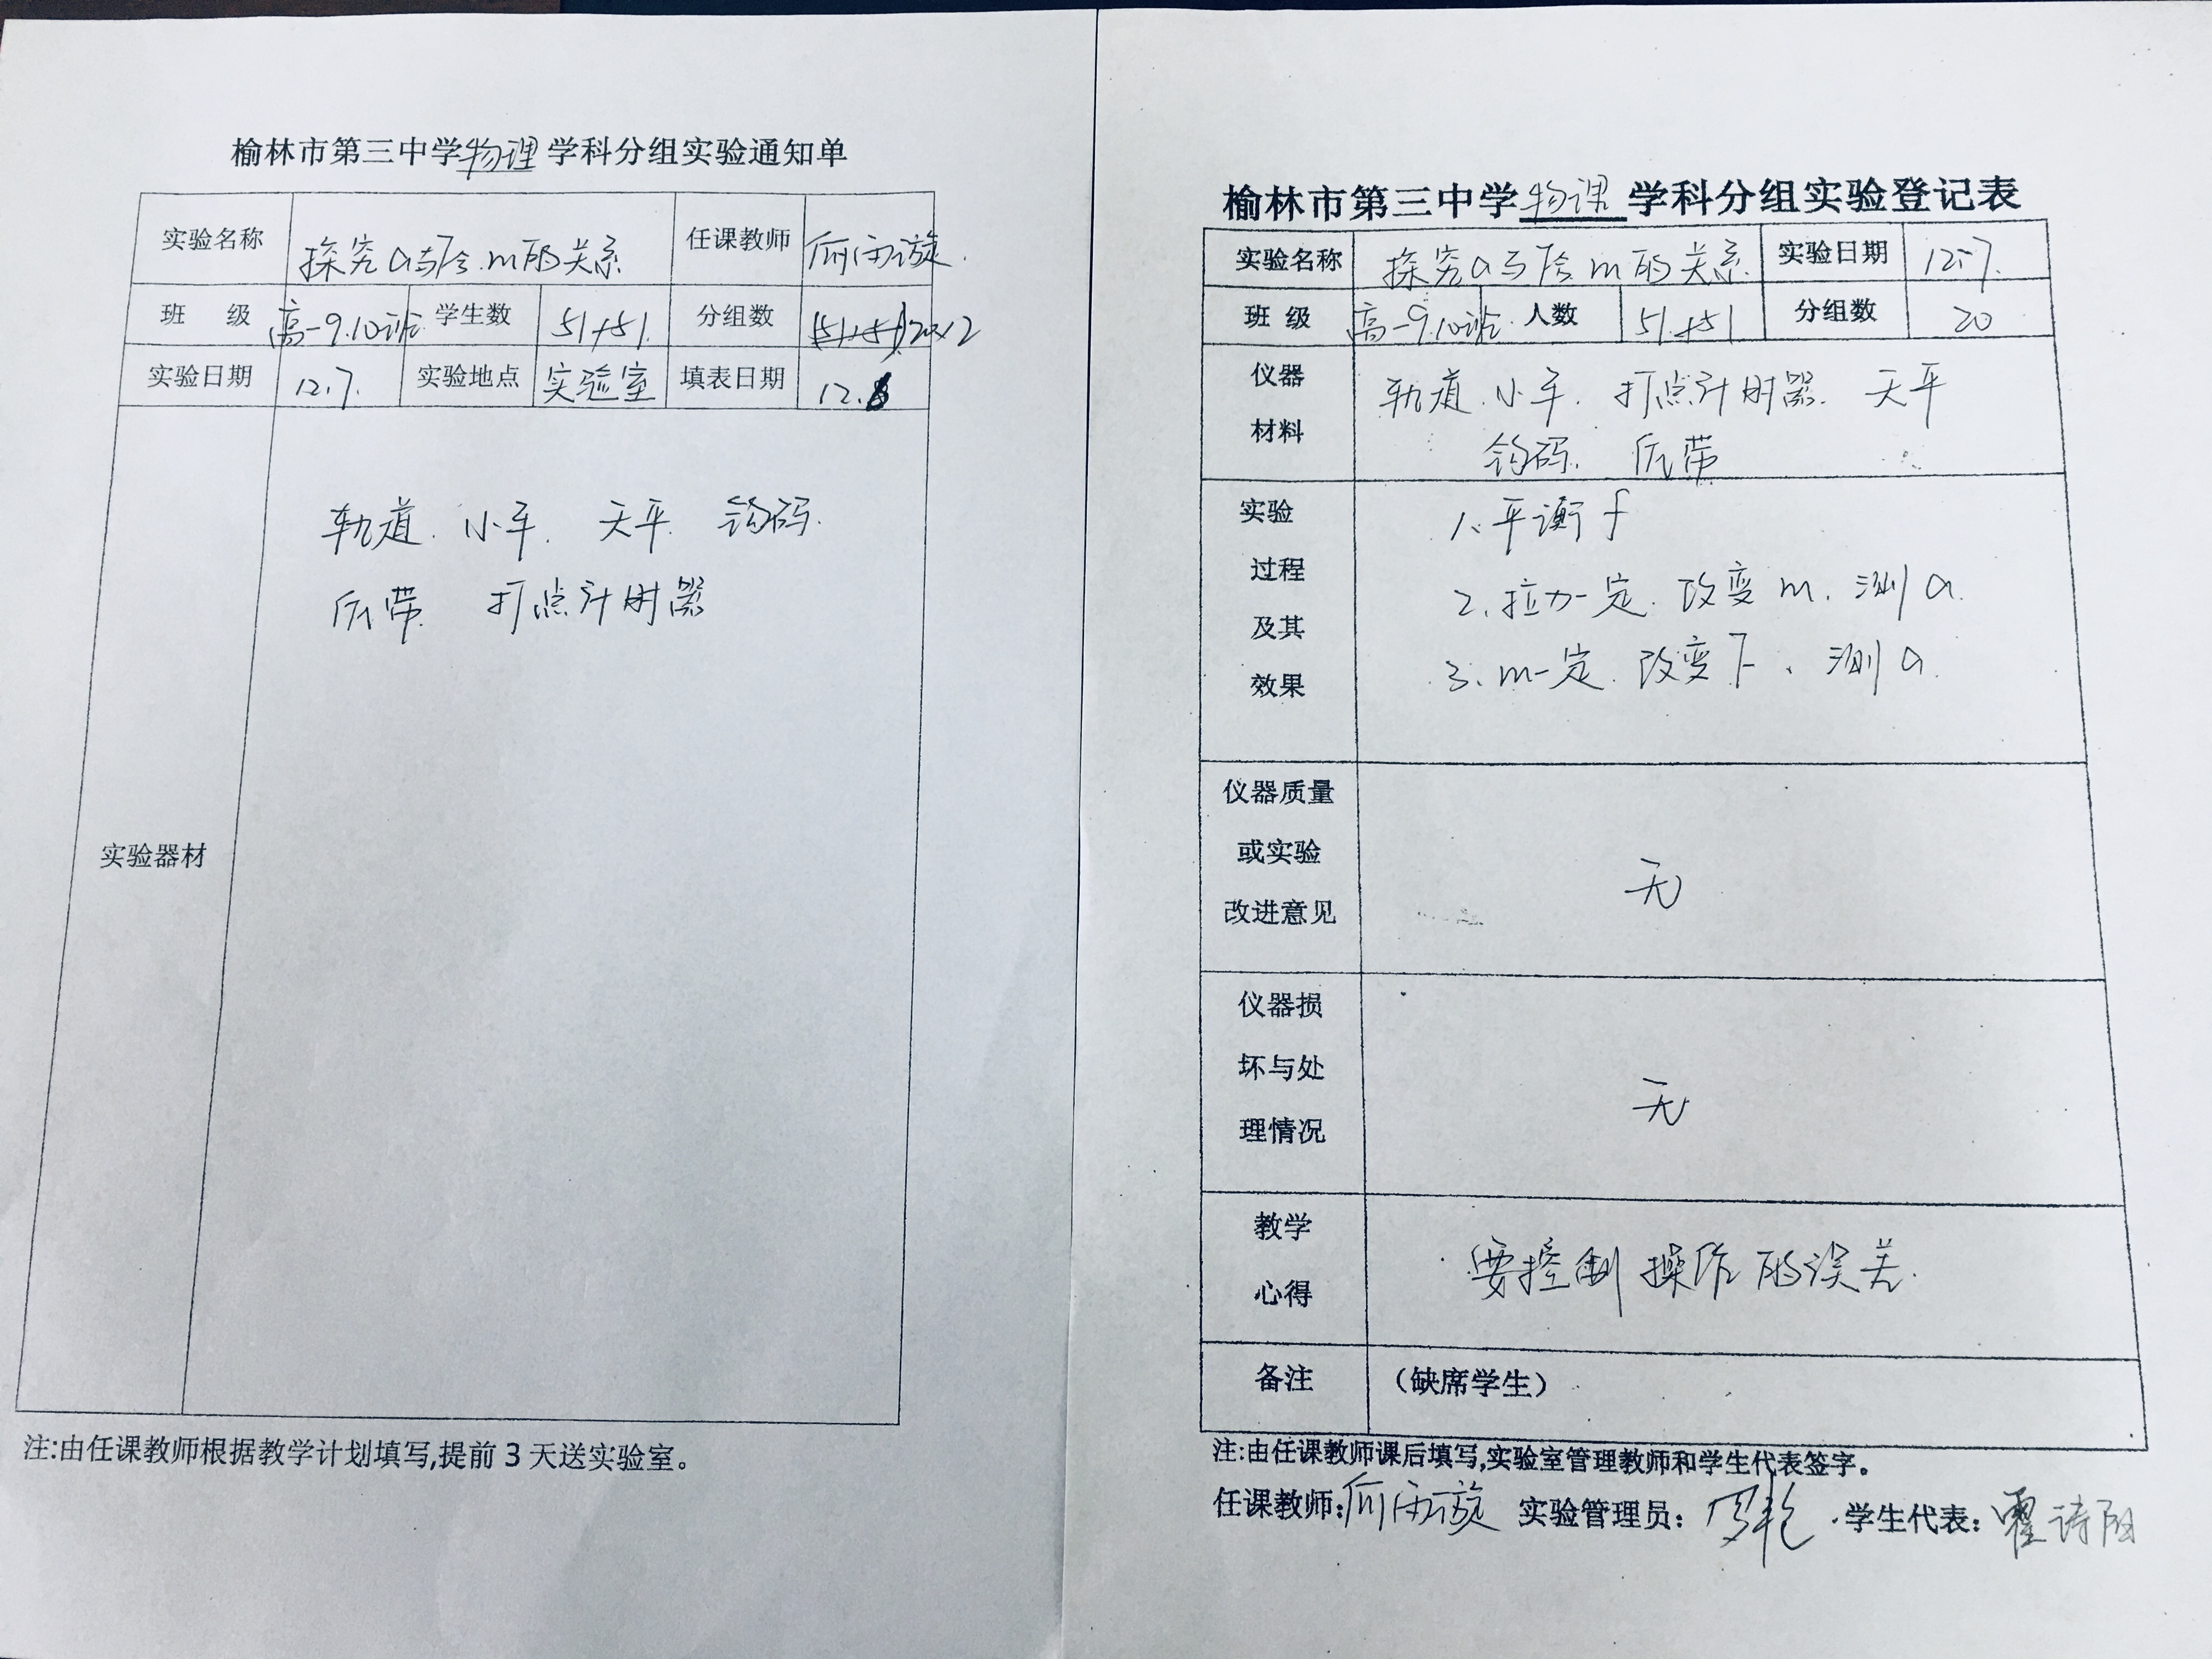 榆林市第三中学物理学科分组实验通知单
实验名称 探究a与F合.m的关系 任课教师
班 级 高一9.10班 学生数 51+51. 分组数 (51+51) 20×2
实验日期 12.7. 实验地点 实验室 填表日期 12.
实验器材
轨道. 小车. 天平. 钩码.
纸带. 打点计时器
注:由任课教师根据教学计划填写,提前 3 天送实验室。
榆林市第三中学物理学科分组实验登记表
实验名称 探究a与F合m的关系. 实验日期 12.7.
班 级 高一9.10班. 人数 51+51 分组数 20
仪器材料
轨道. 小车. 打点计时器. 天平
钩码. 纸带
实验过程及其效果
1、平衡f
2、拉力一定. 改变m、测a.
3、m一定. 改变F、测a.
仪器质量或实验改进意见
无
仪器损坏与处理情况
无
教学心得
要控制操作的误差.
备注 （缺席学生）
注:由任课教师课后填写,实验室管理教师和学生代表签字。
任课教师: 实验管理员: 学生代表: